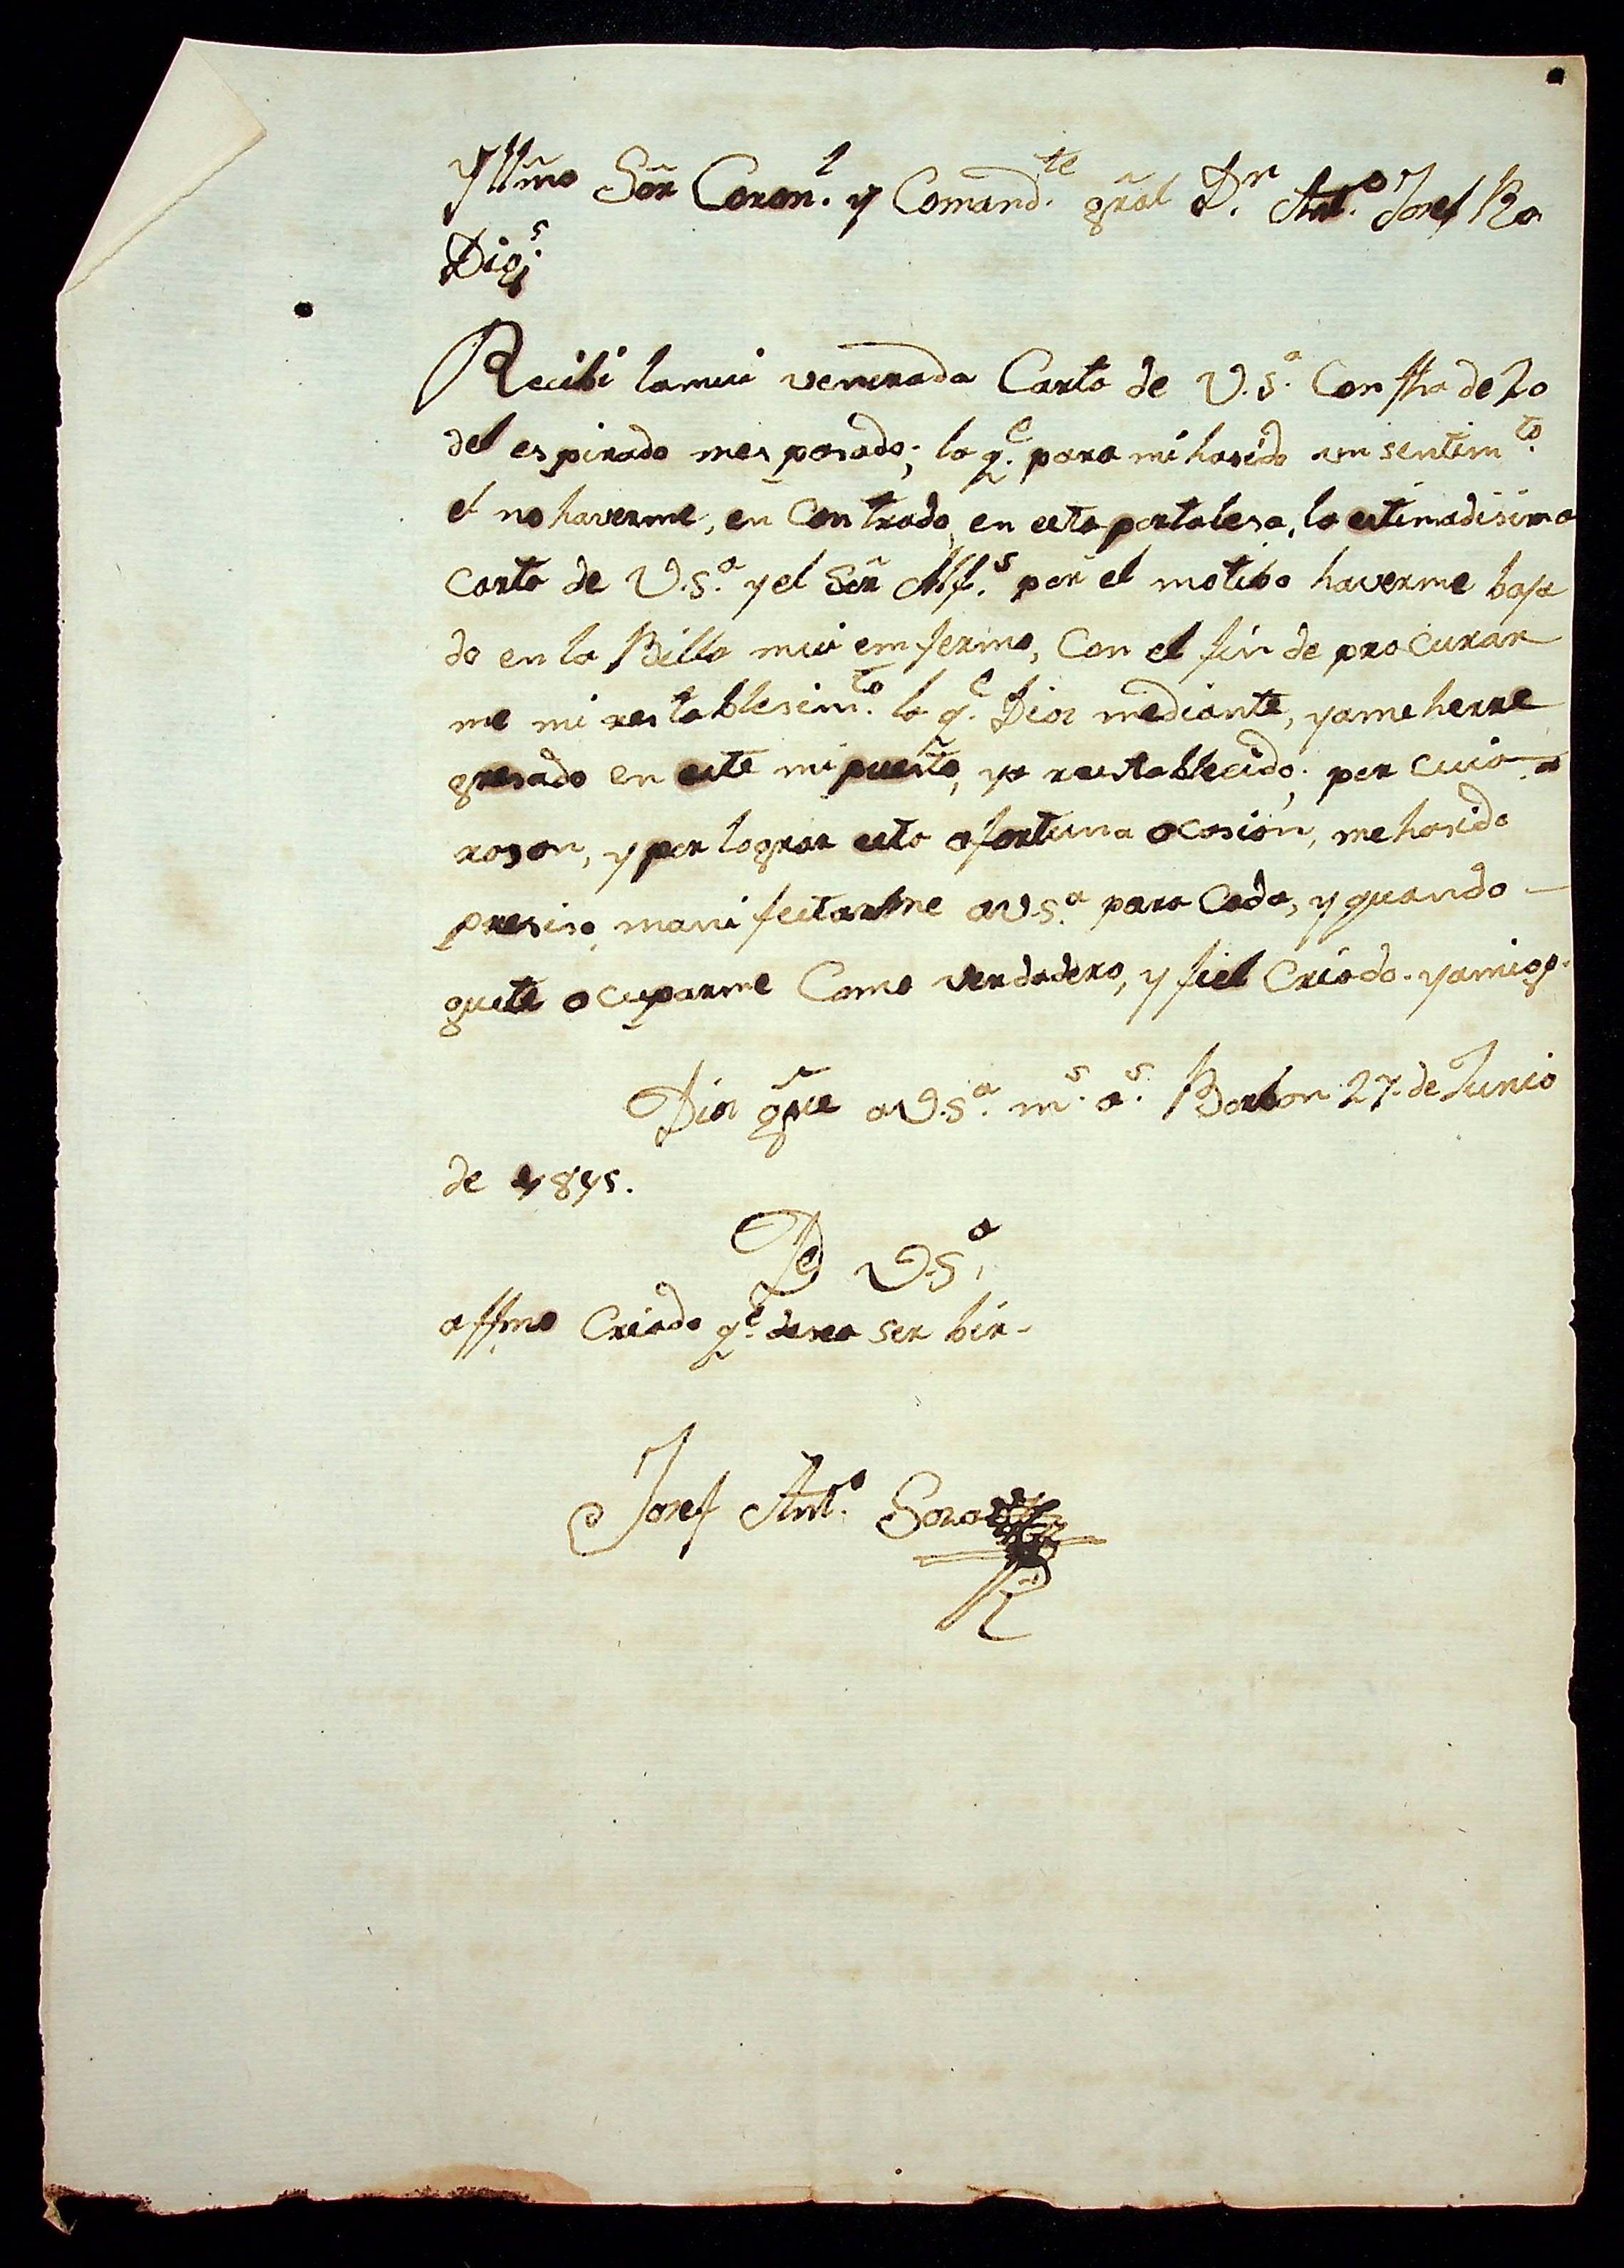 Yllm̃o Sõr Coron.l y Comand.te gr̃al D.n Ant.o Josef Ro
Drig.s
Recibi lamui venerada Carta de V.S.a Con fha de 20
del espirado mes pasado; la q.e para mi hasido un sentim.to
el no haverme, en Contrado, en esta portalesa, la estimadisima
carta de V.S.a y el Sõr Alf.s por el motibo haverme baja
do en la Billa mui emfermo, Con el fin de procurar
me mi restablesim.to la q.e Dios mediante, yame herre
gresado en este mi puesto, ya reestablecido; por cuia
rason, y por lograr esta afortuna ocasion, me hasido
presiso, manifestarme aV.S.a para Cada, y quando
guste ocuparme Como verdadero, y fiel Criado. yamigo.
Dios gũe aV.S.a m.s a.s Borbon 27. de Junio
de 1815.
D V.S.a
affmo Criado q.e desea ser bir-
Josef Ant.o